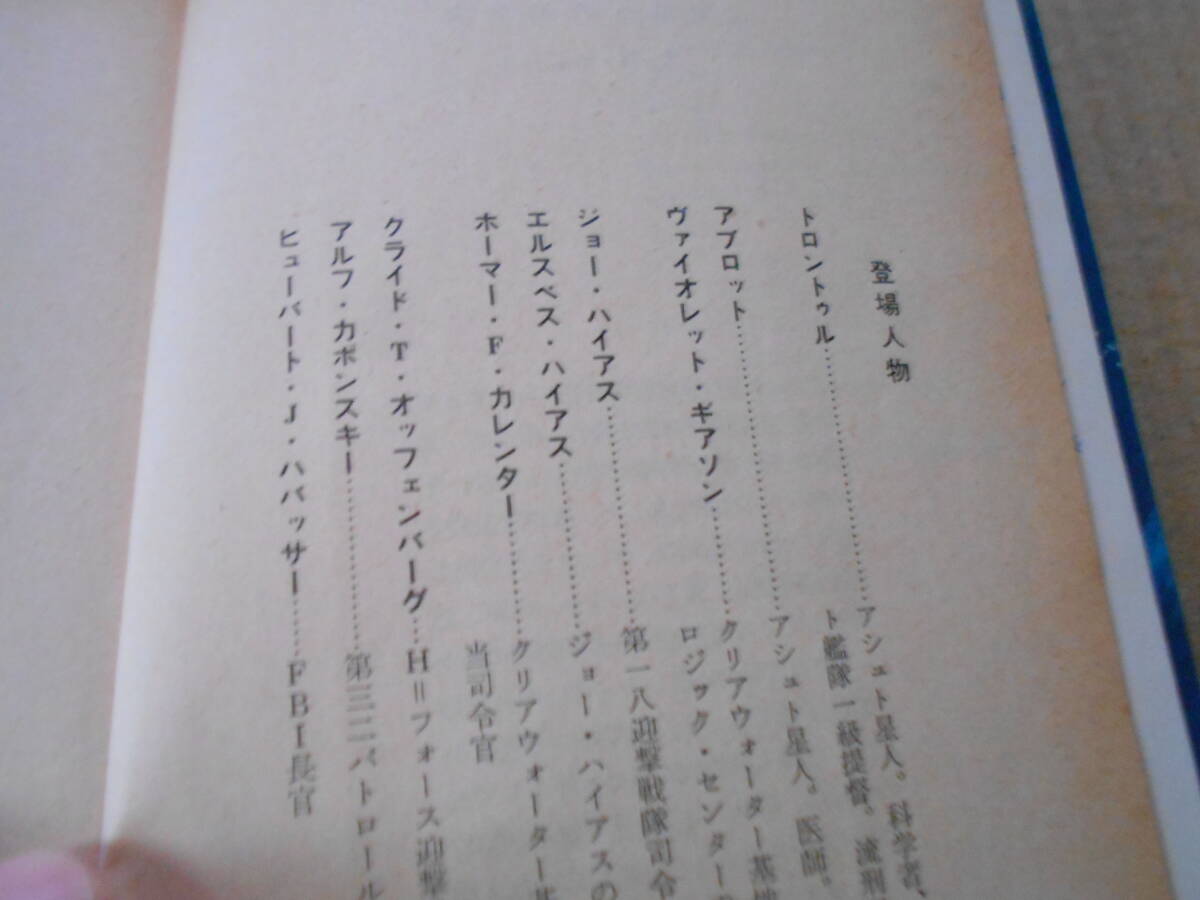 登場人物
トロントゥル……………アシュト星人。科学者、
ト艦隊一級提督。流刑
アブロット……………アシュト星人。医師。
ヴァイオレット・ギアソン………クリアウォーター基地
ロジック・センター
ジョー・ハイアス……………第一八迎撃戦隊司令
エルスベス・ハイアス…………ジョー・ハイアスの
ホーマー・F・カレンター………クリアウォーター
当司令官
クライド・T・オッフェンバーグ…H＝フォース迎撃
アルフ・カポンスキー……………第三二パトロール
ヒューバート・J・ハバッサー……FBI長官